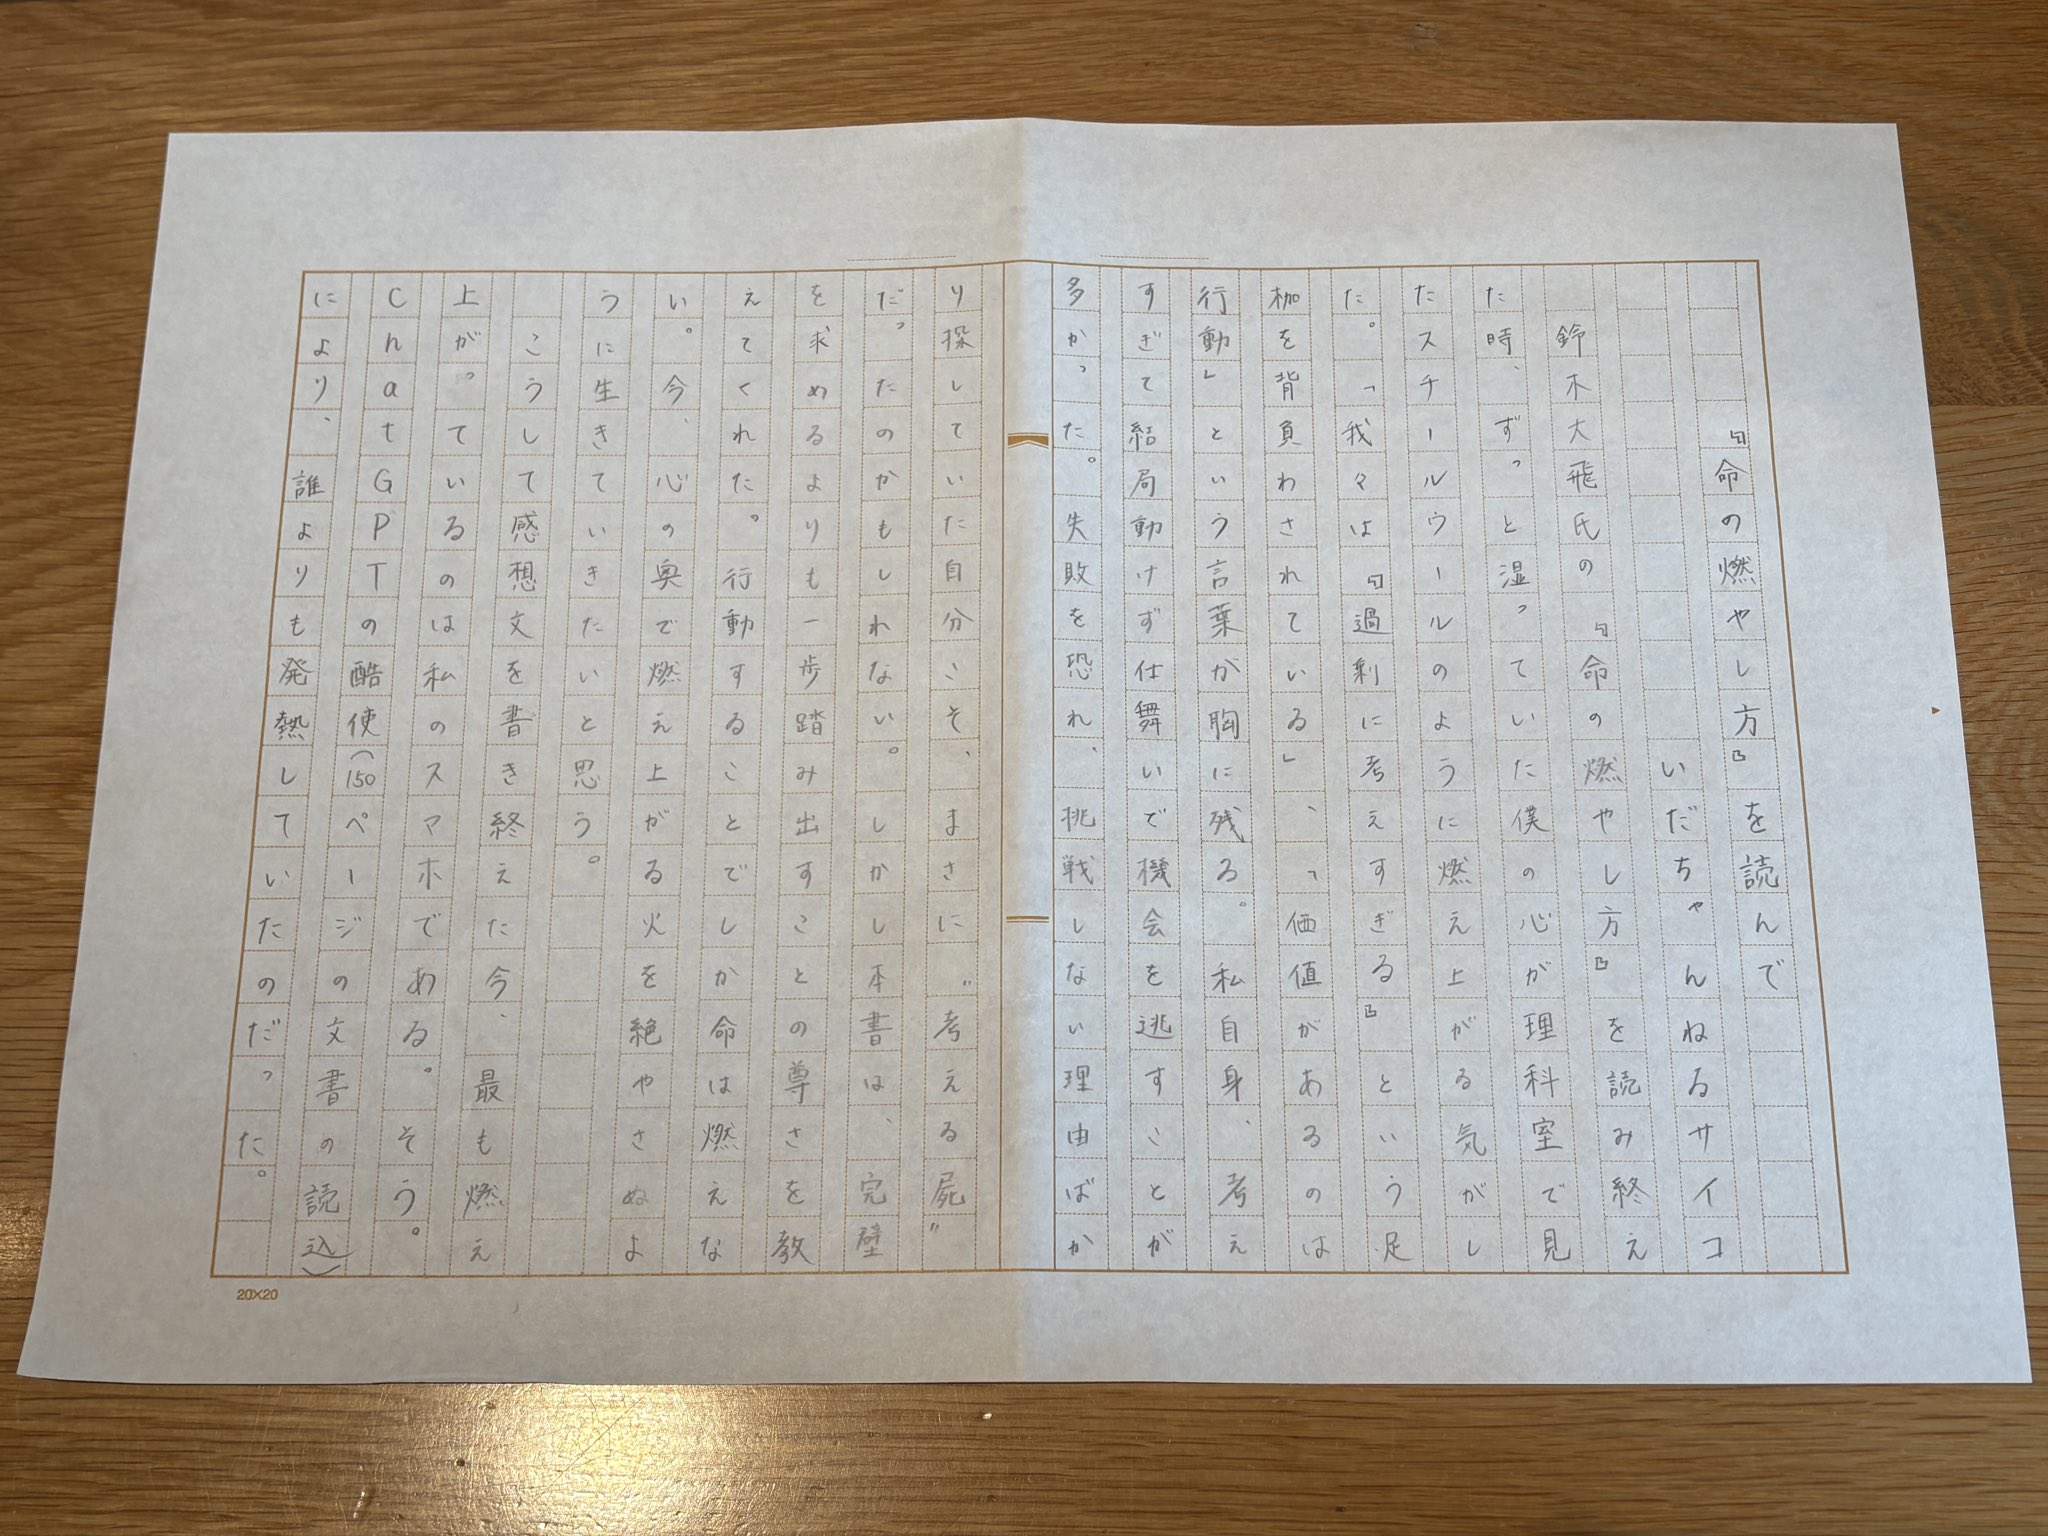 『命の燃やし方』を読んで
いだちゃんねるサイコ
鈴木大飛氏の『命の燃やし方』を読み終え
た時、ずっと湿っていた僕の心が理科室で見
たスチールウールのように燃え上がる気がし
た。「我々は『過剰に考えすぎる』という足
枷を背負わされている」、「価値があるのは
行動」という言葉が胸に残る。私自身、考え
すぎて結局動けず仕舞いで機会を逃すことが
多かった。失敗を恐れ、挑戦しない理由ばか
り探していた自分こそ、まさに〝考える屍〟
だったのかもしれない。しかし本書は、完璧
を求めるよりも一歩踏み出すことの尊さを教
えてくれた。行動することでしか命は燃えな
い。今、心の奥で燃え上がる火を絶やさぬよ
うに生きていきたいと思う。
こうして感想文を書き終えた今、最も燃え
上がっているのは私のスマホである。そう。
ChatGPTの酷使(150ページの文書の読込)
により、誰よりも発熱していたのだった。
20×20